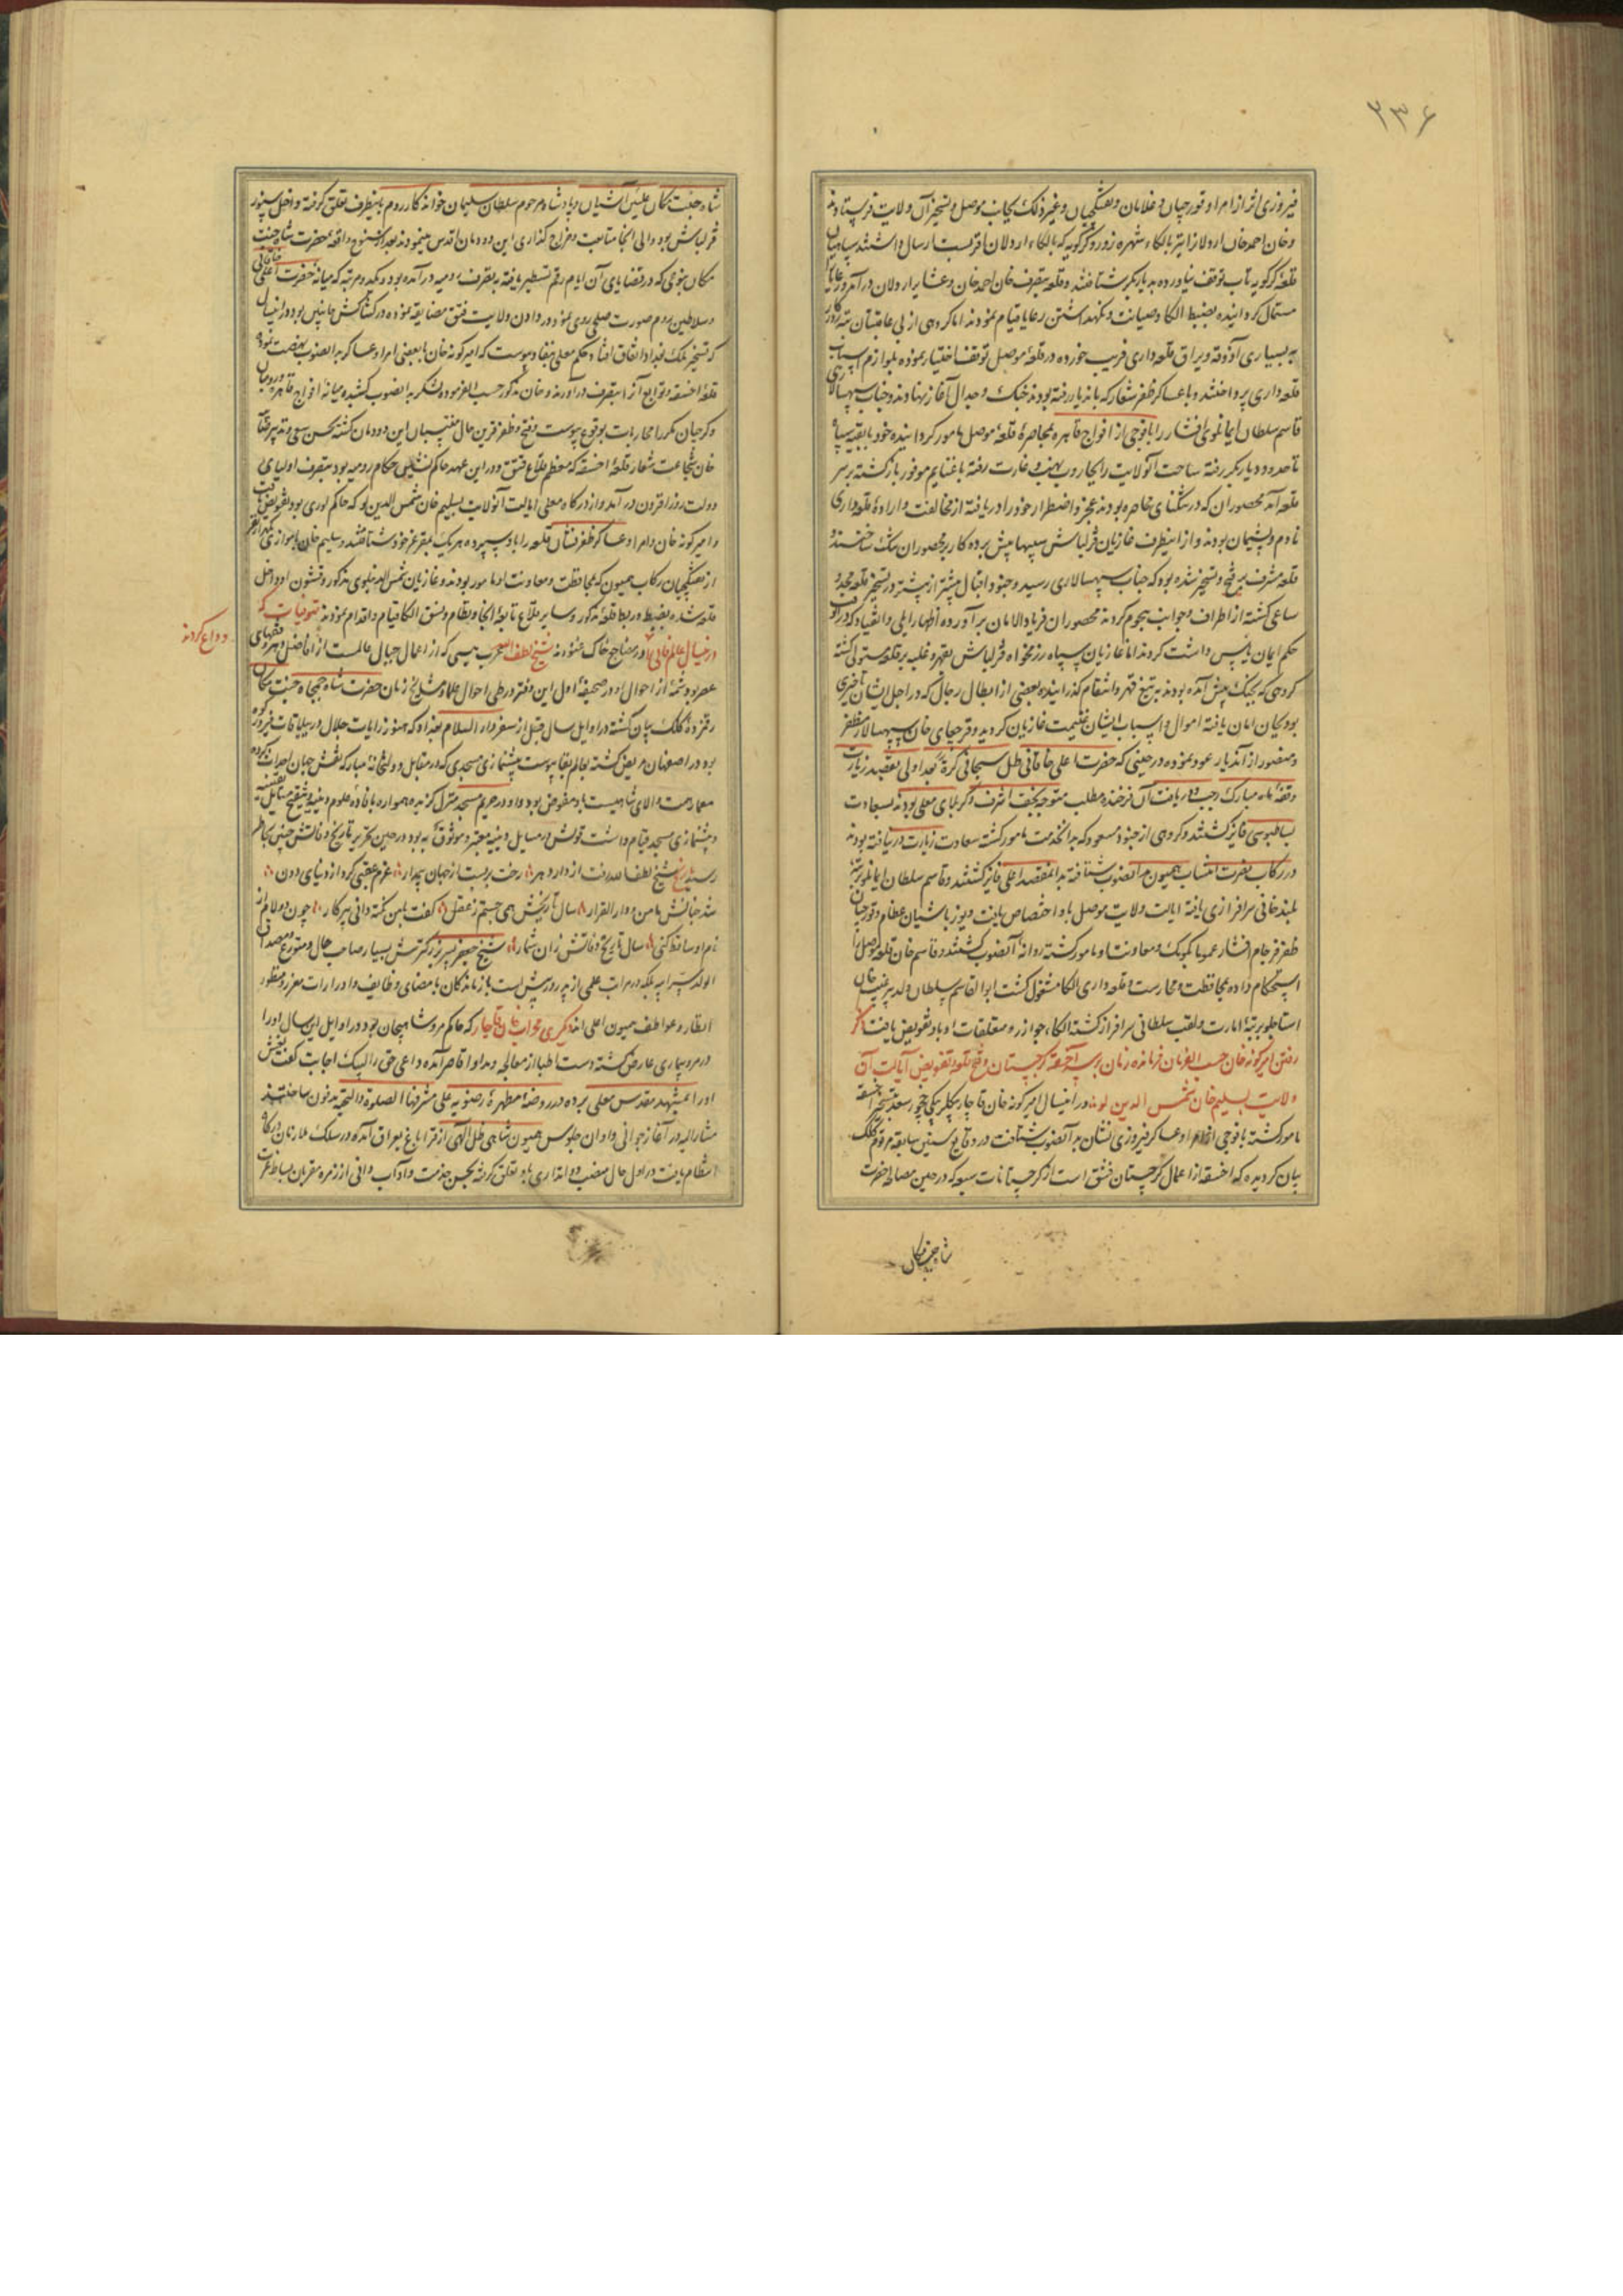 ۲۳۶
فیروزی اثر از امرا و قورچیان و غلامان و تفنگچیان و غیر ذلک بجانب موصل و تسخیر آن ولایت فرستادند
و خان احمد خان اردلان را نیز بالکاء شهره زور و کرکویه که بالکاء اردلان اقربست ارسال داشتند سپاهیان
قلعهٔ کرکویه تاب توقف نیاورده بدیاربکر شتافتند و قلعه بتصرف خان احمد خان و عشایر اردلان درآمد و رعایا را
مستمال گردانیده بضبط الکا و صیانت و نگهداشتن رعایا قیام نمودند اما گروهی از بی عاقبتان تبه روزگار
به بسیاری آذوقه و یراق قلعه داری فریب خورده در قلعهٔ موصل توقف اختیار نموده بلوازم اسباب
قلعه داری پرداختند و با عساکر ظفر شعار که باندیار رفته بودند جنگ و جدال آغاز نهادند و جناب سپهسالاری
قاسم سلطان ایمانلوی افشار را با فوجی از افواج قاهره بمحاصرهٔ قلعهٔ موصل مامور گردانیده خود با بقیه سپاه
تا حدود دیاربکر رفته ساحت آنولایت را بجاروب نهب و غارت رفته با غنایم موفور بازگشته بر سر
قلعه آمد محصوران که در تنگنای محاصره بودند عجز و اضطرار خود را دریافته از مخالفت و ارادهٔ قلعه داری
نادم و پشیمان بودند و از اینطرف غازیان قزلباش سیبها پیش برده کار بر محصوران تنگ ساختند و
قلعه مشرف بر فتح و تسخیر شده بود که جناب سپهسالاری رسید و جنود اقبال بیشتر از پیشتر در تسخیر قلعه مجد و
ساعی گشته از اطراف و جوانب هجوم کردند محصوران فریاد الامان برآورده اظهار ایلی و انقیاد کردند
حکم ایمان یأس داشت کردند اما غازیان سپاه رزمخواه قزلباش بقهر و غلبه بر قلعه مستولی گشته
گروهی که بجنگ پیش آمده بودند به تیغ قهر و انتقام گذرانیده بعضی از ابطال رجال که در اجل ایشان تأخیری
بود بجان امان یافته اموال و اسباب ایشان غنیمت غازیان گردید و قرچغای خان سپهسالار مظفر
و منصور از آندیار عود نموده در حینی که حضرت اعلی خاقانی ظل سبحانی کرة بعد اولی بقصد زیارت
وقفهٔ ماه مبارک رجب و دریافت آن فرخنده مطلب متوجه نجف اشرف و کربلای معلی بودند بسعادت
بساطبوسی فایز گشتند و گروهی از جنود مسعود که بدانخدمت مامور گشته سعادت زیارت درنیافته بودند
در رکاب نصرت انتساب همیون بدانصوب شتافته بدانمقصد اعلی فایز گشتند و قاسم سلطان ایمانلو برتبهٔ
بلند خانی سرافرازی یافته ایالت ولایت موصل باو اختصاص یافت و یوزباشیان عظام و قورچیان
ظفر فرجام افشار عموما بکومک و معاونت او مامور گشته روانهٔ آنصوب گشتند و قاسم خان قلعه موصل را
استحکام داده بمحافظت و محارست و قلعه داری الکا مشغول گشت ابوالقاسم سلطان ولد پیرغیب خان
استاجلو برتبهٔ امارت و لقب سلطانی سرافراز گشته الکاء جوازر و متعلقات او باو تفویض یافت ذکر
رفتن امیرگونه خان حسب الفرمان فرمانده زمان بر سر آخسقهٔ گرجستان و فتح قلعه و تفویض ایالت آن
ولایت بسلیم خان شمس الدین لو در اینسال امیرگونه خان قاجار بیگلربیگی چخور سعد بتسخیر اخسقه
مامور گشته با فوجی از امرا و عساکر فیروزی نشان بدانصوب شتافت در وقایع سنین سابقه مرقوم کلک
بیان گردیده که اخسقه از اعمال گرجستان فشق است از گرجستانات سبعه که در حین مصالحه حضرت
شاه جنت مکان
شاه جنت مکان علیین آشیان و پادشاه مرحوم سلطان سلیمان خواندگار روم باینطرف تعلق گرفته داخل سنور
قزلباش بود والی آنجا متابعت و خراج گذاری این دودمان اقدس مینمودند بعد از سنوح واقعهٔ حضرت شاه جنت
مکان بنوعی که در قضایای آن ایام رقم تسطیر یافته بتصرف رومیه درآمده بود و یکدو مرتبه که میانه حضرت اعلی خاقانی
و سلاطین روم صورت صلحی روی نمود در دادن ولایت فشق مضایقه نموده در کشاکش مابین بود در اینسال
که تسخیر ملک بغداد اتفاق افتاد حکم معلی بنفاد پیوست که امیرگونه خان با بعضی امرا و عساکر بدانصوب نهضت نموده
قلعهٔ اخسقه و توابع آنرا بتصرف درآورند و خان مذکور حسب الفرموده لشکر بدانصوب کشیده میانه افواج قاهره و رومیان
و گرجیان مکرر محاربات بوقوع پیوست و فتح و ظفر قرین حال منتسبان این دودمان گشته بحسن سعی و تدبیر
خان شجاعت شعار قلعهٔ اخسقه که معظم قلاع فشق و در این عهد حاکم نشین حکام رومیه بود بتصرف اولیای
دولت روزافزون درآمد و از درگاه معلی ایالت آنولایت بسلیم خان شمس الدین لو که حاکم لوری بود تفویض یافت
و امیرگونه خان و امرا و عساکر ظفر نشان قلعه را باو سپرده هر یک بمقر عز خود شتافتند و سلیم خان با موازی
از تفنگچیان رکاب همیون که بمحافظت و معاونت او مامور بودند و غازیان شمس الدینلوی مذکور و قشون او داخل
قلعه شده بضبط و ربط قلعهٔ مذکور و سایر قلاع تابعهٔ آنجا و نظام و نسق الکا قیام و اقدام نمودند متوفیات که
در اینسال عالم فانی را ودر مضاجع خاک غنودند شیخ لطف الله عرب میسی که از اعمال جبال عاملست از افاضل و مهره فقهای
وداع کردند
عصر بود شمهٔ از احوال او در صحیفهٔ اول این دفتر در طی احوال علما و مشایخ زمان حضرت شاه جمجاه جنت مکان
رقمزدهٔ کلک بیان گشته در اوایل سال قبل از سفر دارالسلام بغداد که هنوز رایات جلال در ییلاقات فیروزکوه
بود در اصفهان مریض گشته بعالم بقا پیوست پیشنمازی مسجدی که در مقابل دولتخانهٔ مبارکه نقش جهان احداث کرده
معمار همت والای شاهیست باو مفوض بود و او در حریم مسجد منزل گزیده همواره بافادهٔ علوم دینیه و تنقیح مسایل یقینیه
و پیشنمازی مسجد قیام داشت قولش در مسایل دینیه معتبر و موثوق به بود در حین تحریر تاریخ وفاتش چنین بخاطر
رسید تاریخ شیخ لطف الله رفت از دار دهر رخت بربست از جهان بیمدار عزم عقبی کرد از دنیای دون
شد جنانش مامن و دارالقرار سال تاریخش همی جستم ز عقل گفت با من نکته دانی پیر کار چون دو لام از
نام او ساقط کنی سال تاریخ وفاتش زان شمار شیخ جعفر پسر بزرگترش بسیار صاحب حال و متورع و مصداق
الولد سر ابیه بلکه در مراتب علمی از پدر در پیش است بازماندگان بامضای وظایف و ادرارات معزز و منظور
انظار و عواطف همیون اعلی اند دیگری محراب خان قاجار که حاکم مرو شاهیجان بود در اوایل این سال او را
در مرو بیماری عارض گشته دست اطبا از معالجه و مداوا قاصر آمده داعی حق را لبیک اجابت گفت نعشش
او را بمشهد مقدس معلی برده در روضهٔ مطهرهٔ رضویه علی مشرفها الصلوة و التحیه مدفون ساختند
مشارالیه در آغاز جوانی و اوان جلوس همیون شاهی ظل الهی از قراباغ بعراق آمده در سلک ملازمان درگاه
انتظام یافت در اول حال منصب دواتداری باو تعلق گرفته بحسن خدمت و آداب دانی از زمره مقربان بساط عزت